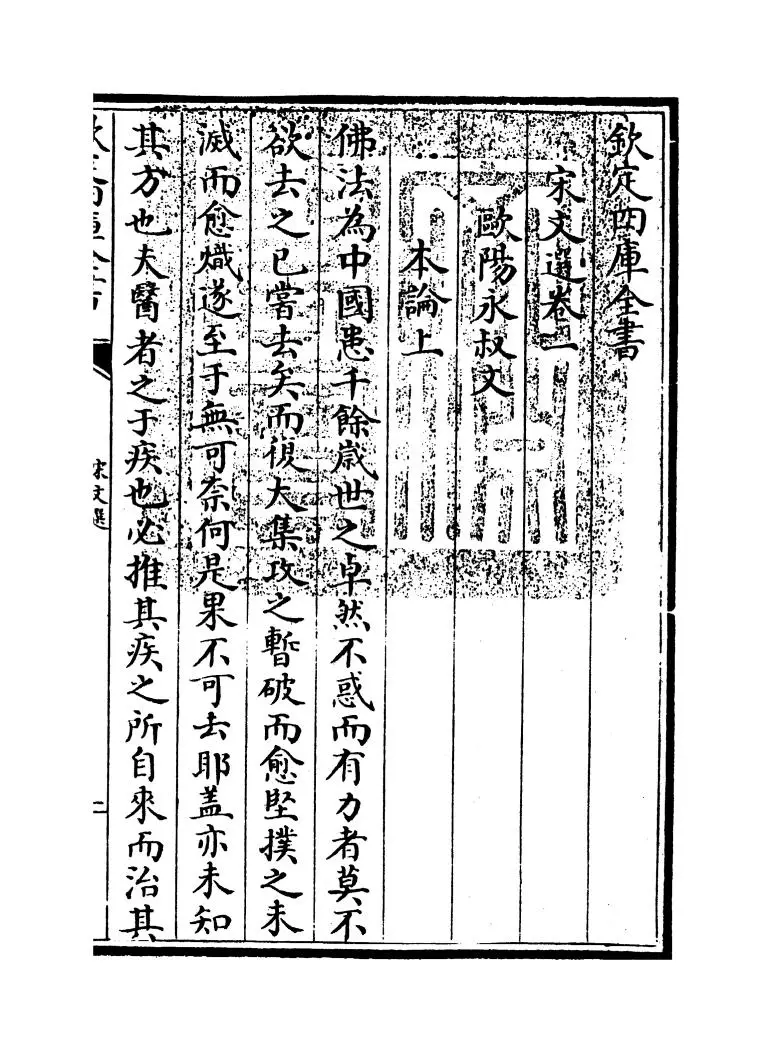 欽定四庫全書
宋文選卷一
歐陽永叔文
本論上
佛法為中國患千餘歲世之卓然不惑而有力者莫不
欲去之已嘗去矣而復大集攻之暫破而愈堅撲之未
滅而愈熾遂至于無可奈何是果不可去耶盖亦未知
其方也夫醫者之于疾也必推其疾之所自來而治其
宋文選